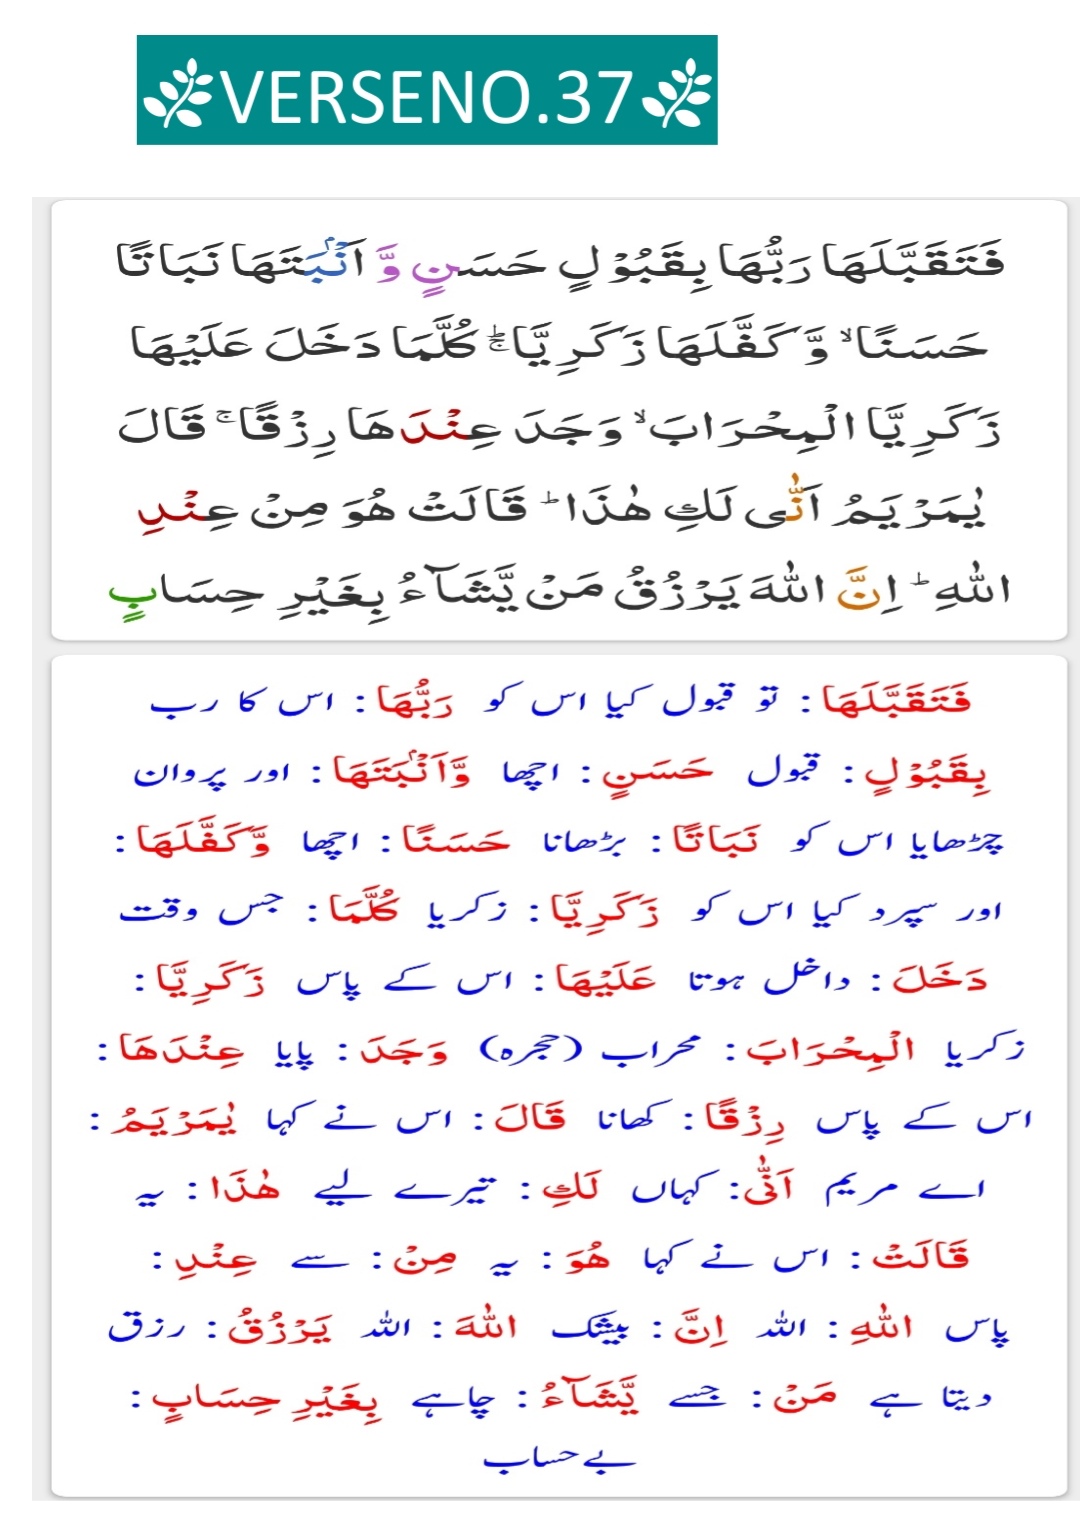 VERSENO.37
فَتَقَبَّلَهَا رَبُّهَا بِقَبُوْلٍ حَسَنٍ وَّ اَنْۢبَتَهَا نَبَاتًا
حَسَنًا ۙ وَّ كَفَّلَهَا زَكَرِیَّا ۚؕ كُلَّمَا دَخَلَ عَلَیْهَا
زَكَرِیَّا الْمِحْرَابَ ۙ وَجَدَ عِنْدَهَا رِزْقًا ۚ قَالَ
یٰمَرْیَمُ اَنّٰى لَكِ هٰذَا ؕ قَالَتْ هُوَ مِنْ عِنْدِ
اللّٰهِ ؕ اِنَّ اللّٰهَ یَرْزُقُ مَنْ یَّشَآءُ بِغَیْرِ حِسَابٍ
فَتَقَبَّلَهَا : تو قبول کیا اس کو رَبُّهَا : اس کا رب
بِقَبُوْلٍ : قبول حَسَنٍ : اچھا وَّاَنْۢبَتَهَا : اور پروان
چڑھایا اس کو نَبَاتًا : بڑھانا حَسَنًا : اچھا وَّكَفَّلَهَا :
اور سپرد کیا اس کو زَكَرِیَّا : زکریا كُلَّمَا : جس وقت
دَخَلَ : داخل ہوتا عَلَیْهَا : اس کے پاس زَكَرِیَّا :
زکریا الْمِحْرَابَ : محراب (حجرہ) وَجَدَ : پایا عِنْدَهَا :
اس کے پاس رِزْقًا : کھانا قَالَ : اس نے کہا یٰمَرْیَمُ :
اے مریم اَنّٰى : کہاں لَكِ : تیرے لیے هٰذَا : یہ
قَالَتْ : اس نے کہا هُوَ : یہ مِنْ : سے عِنْدِ :
پاس اللّٰهِ : اللہ اِنَّ : بیشک اللّٰهَ : اللہ یَرْزُقُ : رزق
دیتا ہے مَنْ : جسے یَّشَآءُ : چاہے بِغَیْرِ حِسَابٍ :
بے حساب